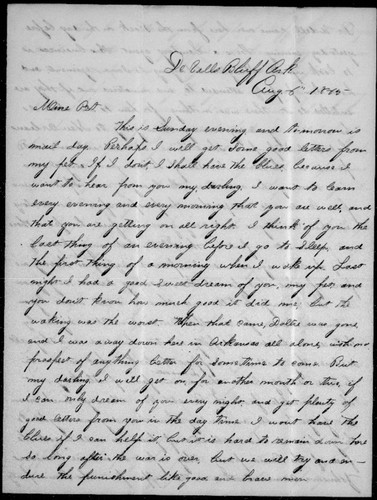 De Valls Bluff Ark
Aug 6" 1865
Mine Pet
This is Sunday evening and to-morrow is
mail day. Perhaps I will get some good letters from
my pet. If I dont I shall have the blues, because I
want to hear from you my darling. I want to learn
every evening and every morning that you are well, and
that you are getting on all right. I think of you the
last thing of an evening before I go to sleep, and
the first thing of a morning when I wake up. Last
night I had a good sweet dream of you, my pet and
you don't know how much good it did me, but the
waking was the worst. When that came, Dollie was gone,
and I was away down here in Arkansas all alone, with no
prospect of anything better for sometime to come. But
my darling I will get on for another month or two, if
I can only dream of you every night, and get plenty of
good letters from you in the day time. I wont have the
blues if I can help it, but it is hard to remain down here
so long after the war is over, but we will try and en-
dure the punishment like good and brave men